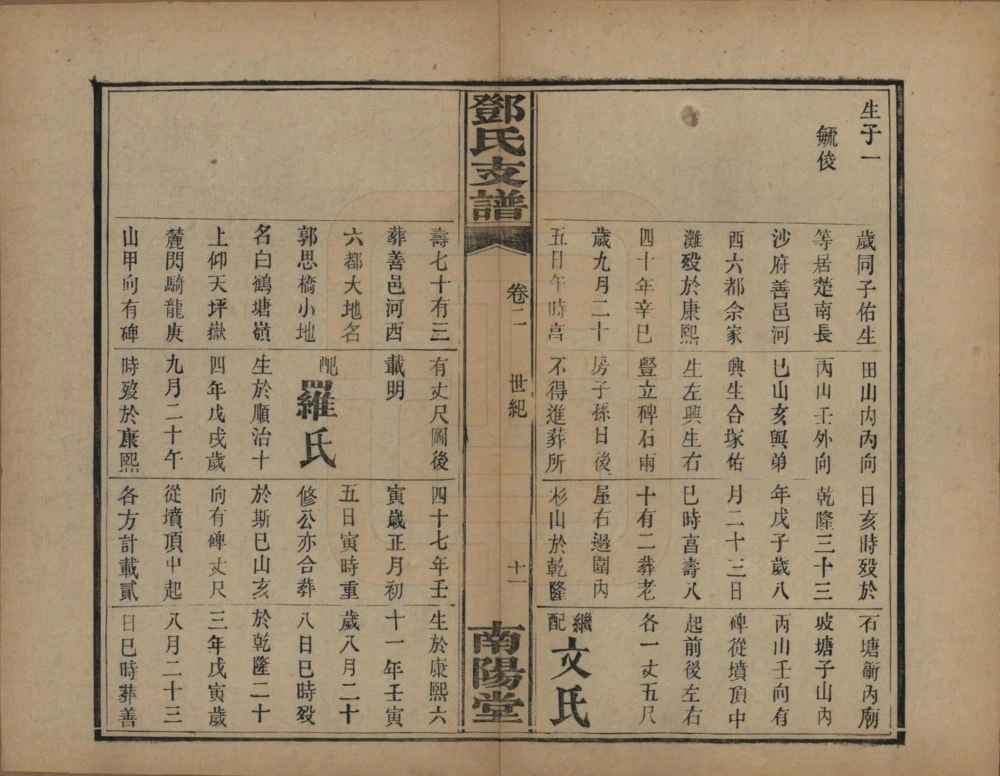 生子一
毓俊
歲同子佑生
等居楚南長
沙府善邑河
西六都佘家
灘歿於康熙
四十年辛巳
歲九月二十
五日午時享
鄧氏支譜
卷二
世紀
十一
南陽堂
壽七十有三
葬善邑河西
六都大地名
郭思橋小地
名白鶴塘嶺
上仰天坪嶽
麓閃騎龍庚
山甲向有碑
田山內丙向
丙山壬外向
巳山亥與弟
興生合塚佑
生左興生右
豎立碑石兩
房子孫日後
不得進葬所
有丈尺圖後
載明
配羅氏
生於順治十
四年戊戌歲
九月二十午
時歿於康熙
日亥時歿於
乾隆三十三
年戊子歲八
月二十三日
巳時享壽八
十有二葬老
屋右邊圍內
杉山於乾隆
四十七年壬
寅歲正月初
五日寅時重
修公亦合葬
於斯巳山亥
向有碑丈尺
從墳頂中起
各方計載貳
石塘衝內廟
坡塘子山內
丙山壬向有
碑從墳頂中
起前後左右
各一丈五尺
繼配文氏
生於康熙六
十一年壬寅
歲八月二十
八日巳時歿
於乾隆二十
三年戊寅歲
八月二十三
日巳時葬善